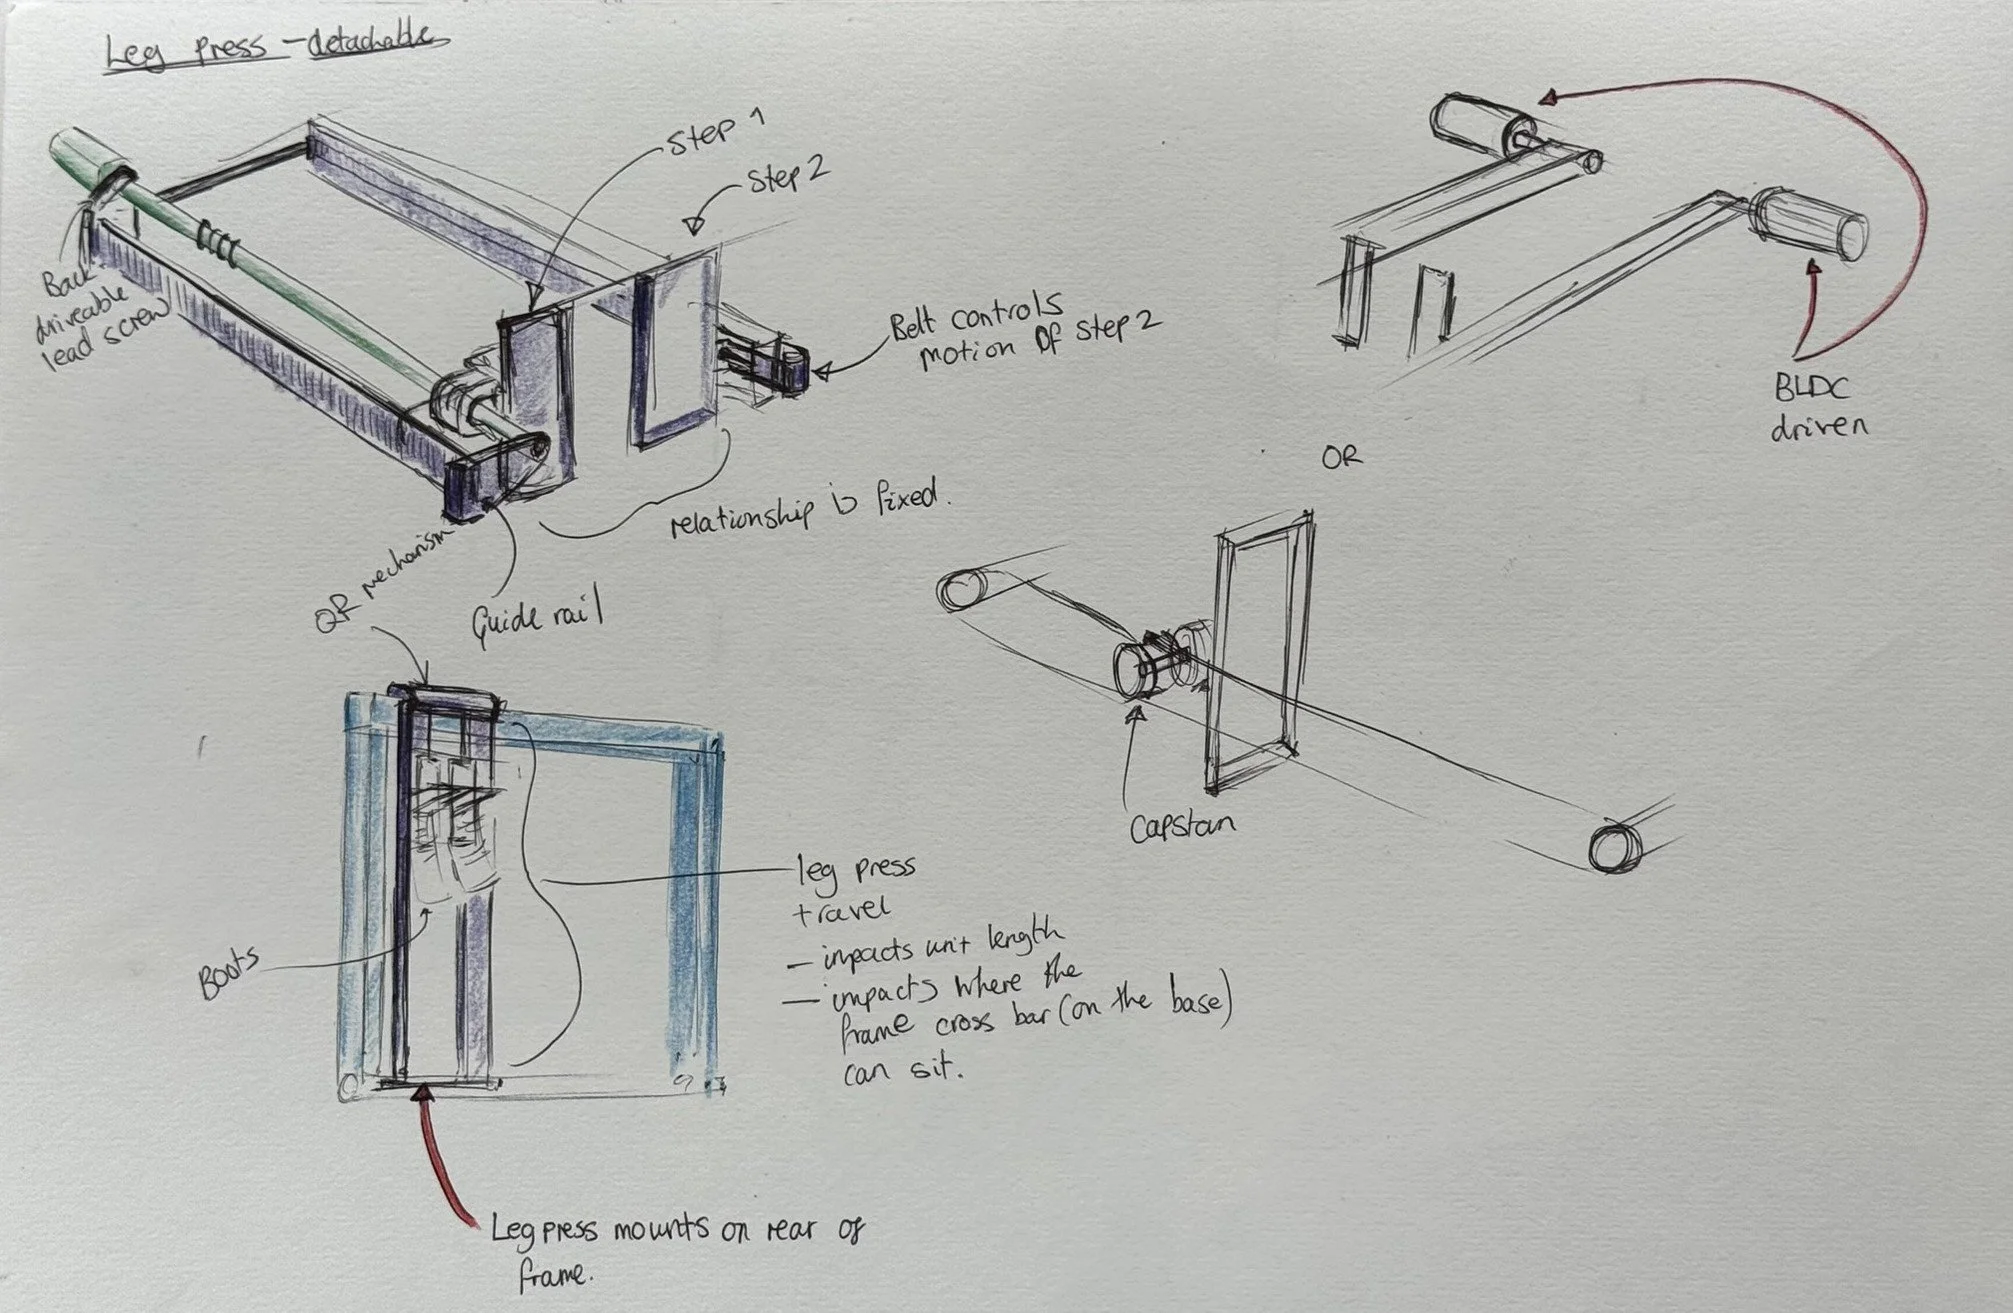 Leg Press - detachable
Step 1
Step 2
Back
driveable
lead screw
Belt controls
motion of step 2
relationship is fixed.
QR mechanism
Guide rail
BLDC
driven
OR
Capstan
leg press
travel
- impacts unit length
- impacts where the
frame cross bar (on the base)
can sit.
Boots
Leg press mounts on rear of
frame.